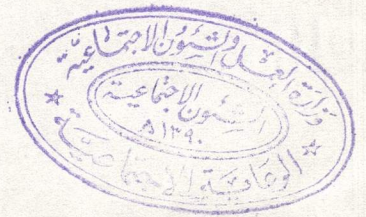 وزارة العمل والشئون الاجتماعية
الشئون الاجتماعية
١٣٩٠ھ
الرعاية الاجتماعية